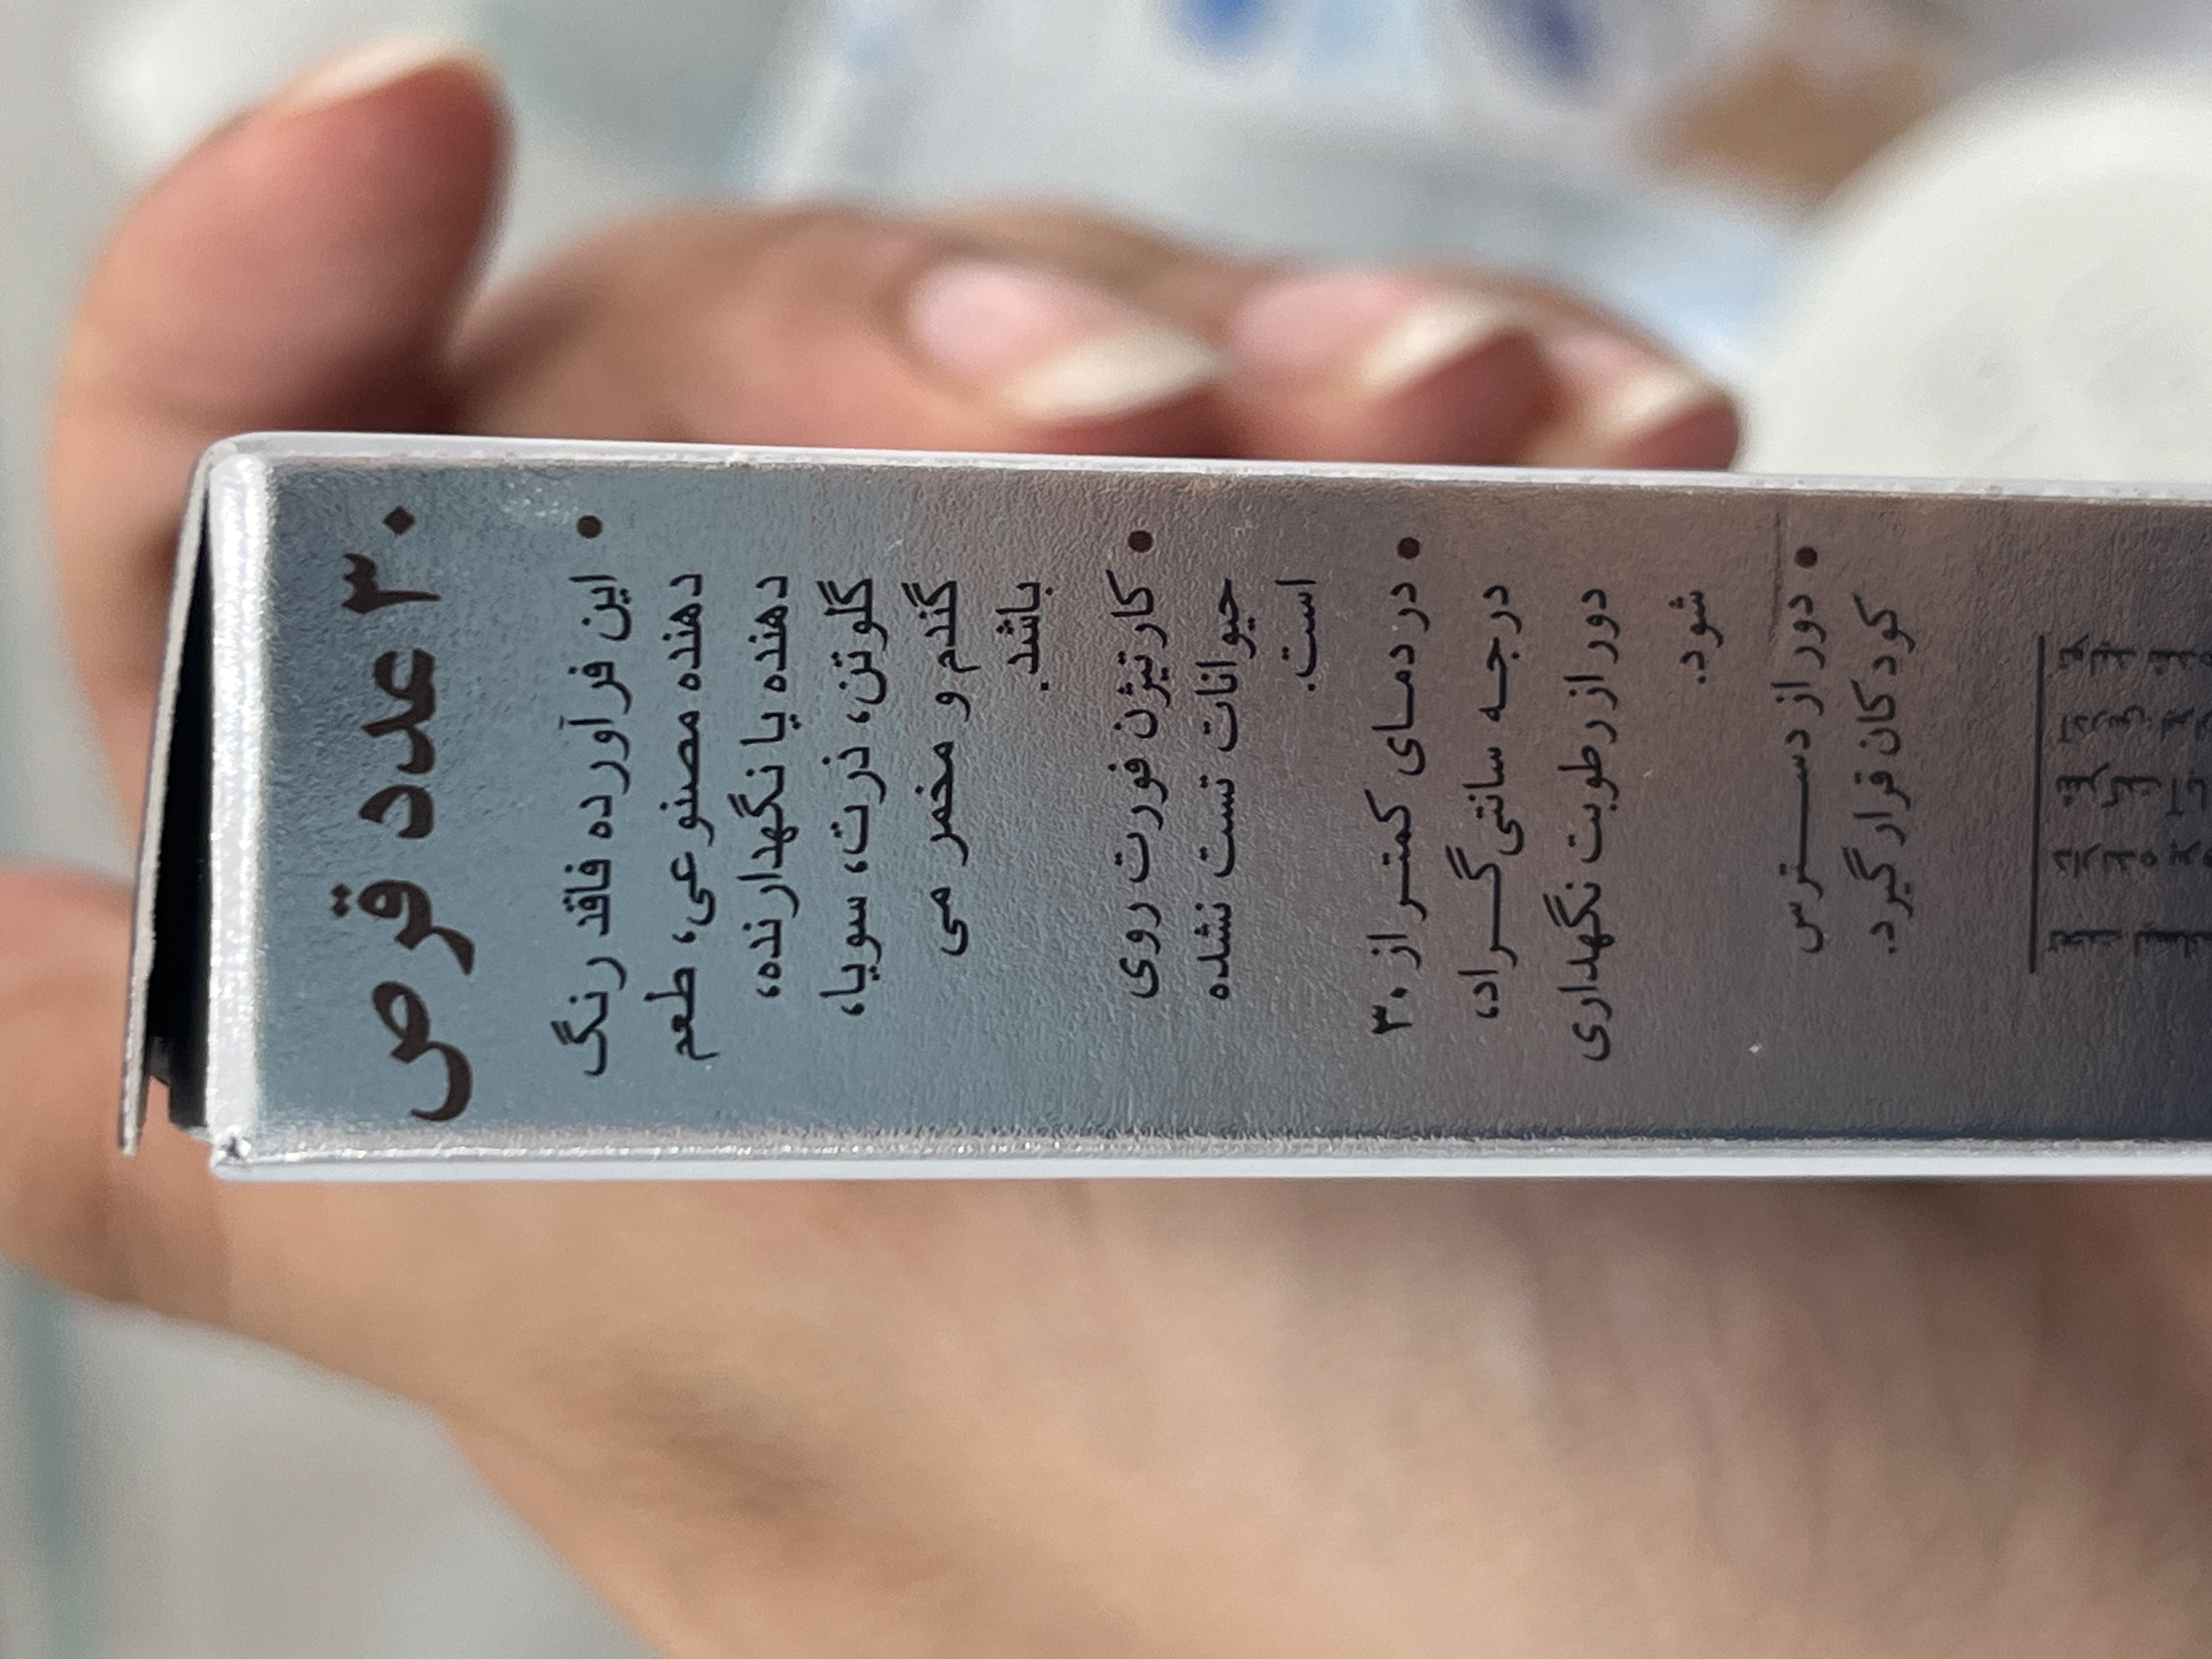 ۳۰ عدد قرص
• این فرآورده فاقد رنگ
دهنده مصنوعی، طعم
دهنده یا نگهدارنده،
گلوتن، ذرت، سویا،
گندم و مخمر می
باشد.
• کارتیژن فورت روی
حیوانات تست نشده
است.
• در دمای کمتر از ۳۰
درجه سانتی‌گراد،
دور از رطوبت نگهداری
شود.
• دور از دسترس
کودکان قرار گیرد.